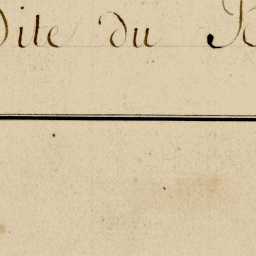 Dite du